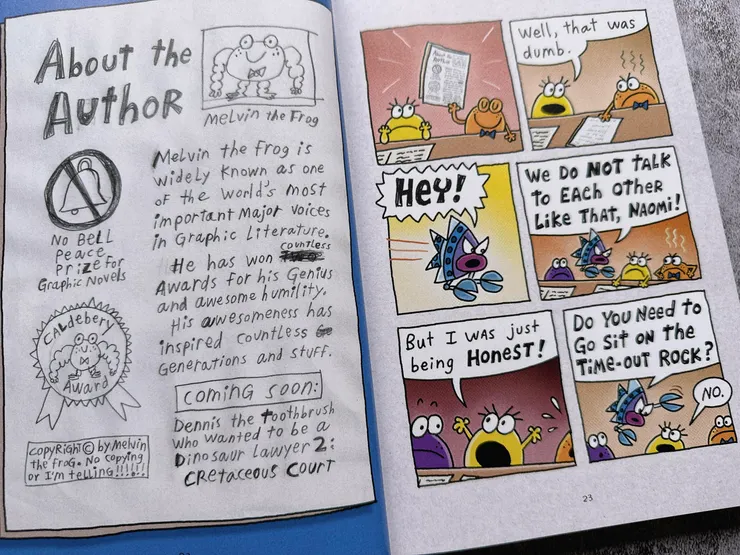 About the
Author
Melvin the Frog
No Bell
Peace
Prize for
Graphic Novels
Caldebery
Award
Copyright © by Melvin
the frog. No copying
or I'm telling!!!!!!
Melvin the frog is
widely known as one
of the world's most
important Major voices
in Graphic Literature.
He has won countless
Awards for his Genius
and awesome humility.
His awesomeness has
inspired countless
Generations and stuff.
Coming soon:
Dennis the toothbrush
who wanted to be a
Dinosaur Lawyer 2:
Cretaceous Court
About the
Author
Well, that was
dumb.
Hey!
We DO NOT TALK
to EACH other
Like That, NAOMI!
But I was just
being HONEST!
Do You Need to
Go Sit on the
Time-out Rock?
No.
23